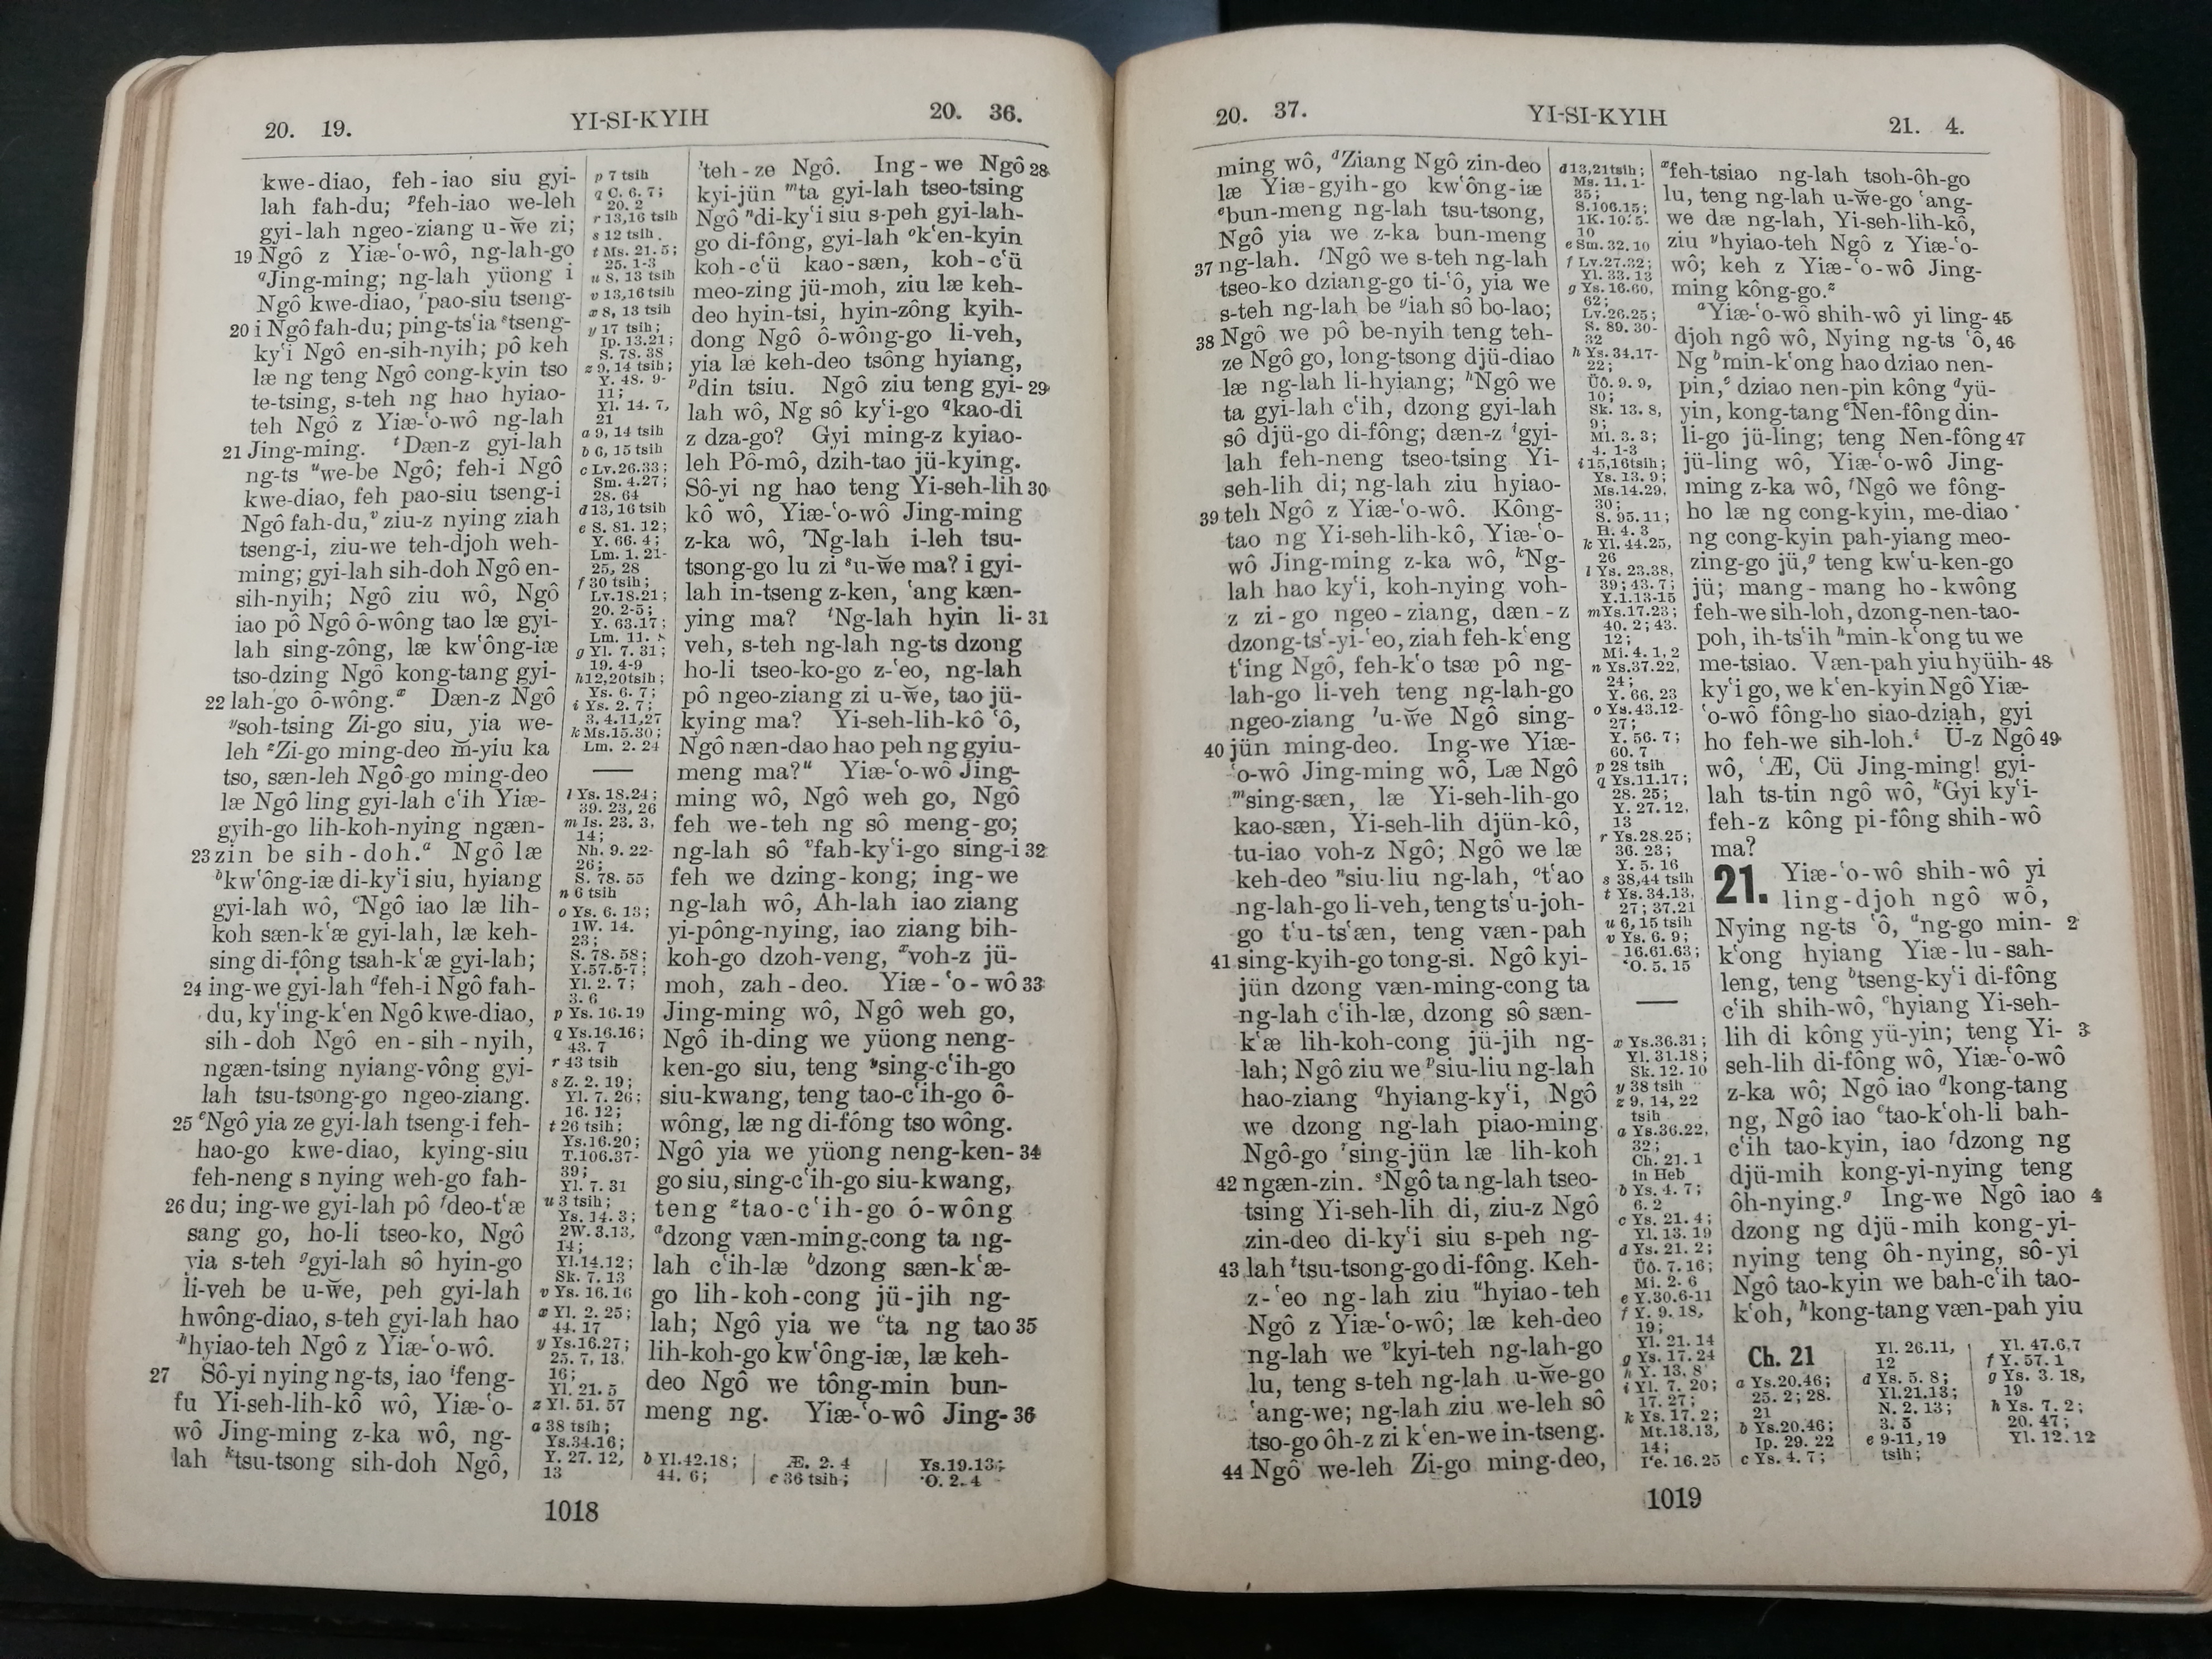 20. 19.
YI-SI-KYIH
20. 36.
kwe-diao, feh-iao siu gyi-
lah fah-du; ᵖfeh-iao we-leh
gyi-lah ngeo-ziang u-w̆e zi;
19 Ngô z Yiæ-ʻo-wô, ng-lah-go
ᑫJing-ming; ng-lah yüong i
Ngô kwe-diao, ʳpao-siu tseng-
20 i Ngô fah-du; ping-tsʻia ˢtseng-
kyʻi Ngô en-sih-nyih; pô keh
læ ng teng Ngô cong-kyin tso
te-tsing, s-teh ng hao hyiao-
teh Ngô z Yiæ-ʻo-wô ng-lah
21 Jing-ming. ᵗDæn-z gyi-lah
ng-ts ᵘwe-be Ngô; feh-i Ngô
kwe-diao, feh pao-siu tseng-i
Ngô fah-du,ᵛ ziu-z nying ziah
tseng-i, ziu-we teh-djoh weh-
ming; gyi-lah sih-doh Ngô en-
sih-nyih; Ngô ziu wô, Ngô
iao pô Ngô ô-wông tao læ gyi-
lah sing-zông, læ kwʻông-iæ
tso-dzing Ngô kong-tang gyi-
22 lah-go ô-wông.ˣ Dæn-z Ngô
ʸsoh-tsing Zi-go siu, yia we-
leh ᶻZi-go ming-deo m̆-yiu ka
tso, sæn-leh Ngô-go ming-deo
læ Ngô ling gyi-lah cʻih Yiæ-
gyih-go lih-koh-nying ngæn-
23 zin be sih-doh.ᵃ Ngô læ
ᵇkwʻông-iæ di-kyʻi siu, hyiang
gyi-lah wô, ᶜNgô iao læ lih-
koh sæn-kʻæ gyi-lah, læ keh-
sing di-fông tsah-kʻæ gyi-lah;
24 ing-we gyi-lah ᵈfeh-i Ngô fah-
du, kyʻing-kʻen Ngô kwe-diao,
sih-doh Ngô en-sih-nyih,
ngæn-tsing nyiang-vông gyi-
lah tsu-tsong-go ngeo-ziang.
25 ᵉNgô yia ze gyi-lah tseng-i feh-
hao-go kwe-diao, kying-siu
feh-neng s nying weh-go fah-
26 du; ing-we gyi-lah pô ᶠdeo-tʻæ
sang go, ho-li tseo-ko, Ngô
yia s-teh ᵍgyi-lah sô hyin-go
li-veh be u-w̆e, peh gyi-lah
hwông-diao, s-teh gyi-lah hao
ʰhyiao-teh Ngô z Yiæ-ʻo-wô.
27 Sô-yi nying ng-ts, iao ⁱfeng-
fu Yi-seh-lih-kô wô, Yiæ-ʻo-
wô Jing-ming z-ka wô, ng-
lah ᵏtsu-tsong sih-doh Ngô,
p 7 tsih
q C. 6. 7;
20. 2
r 13,16 tsih
s 12 tsih
t Ms. 21. 5;
25. 1-3
u 8, 13 tsih
v 13,16 tsih
x 8, 13 tsih
y 17 tsih;
Ip. 13.21;
S. 78. 38
z 9. 14 tsih;
Y. 48. 9-
11;
Yl. 14. 7,
21
a 9, 14 tsih
b 6, 15 tsih
c Lv.26.33;
Sm. 4.27;
28. 64
d 13, 16 tsih
e S. 81. 12;
Y. 66. 4;
Lm. 1. 21-
25, 28
f 30 tsih;
Lv.18.21;
20. 2-5;
Y. 63.17;
Lm. 11.
g Yl. 7. 31;
19. 4-9
h 12,20tsih;
Ys. 6. 7;
i Ys. 2. 7;
3. 4.11,27
k Ms.15.30;
Lm. 2. 24
l Ys. 18.24;
39. 23, 26
m Is. 23. 3,
14;
Nh. 9. 22-
26;
S. 78. 55
n 6 tsih
o Ys. 6. 13;
1W. 14.
23;
S. 78. 58;
Y.57.5-7;
Yl. 2. 7;
3. 6
p Ys. 16.19
q Ys.16.16;
43. 7
r 43 tsih
s Z. 2. 19;
Yl. 7. 26;
16. 12;
t 26 tsih;
Ys.16.20;
T.106.37-
39;
Yl. 7. 31
u 3 tsih;
Ys. 14. 3;
2W. 3.13,
14;
Yl.14.12;
Sk. 7. 13
v Ys. 16.16
x Yl. 2. 25;
44. 17
y Ys.16.27;
25. 7, 13,
16;
Yl. 21. 5
z Yl. 51. 57
a 38 tsih;
Ys.34.16;
Y. 27. 12,
13
ˡteh-ze Ngô. Ing-we Ngô 28
kyi-jün ᵐta gyi-lah tseo-tsing
Ngô ⁿdi-kyʻi siu s-peh gyi-lah-
go di-fông, gyi-lah ᵒkʻen-kyin
koh-cʻü kao-sæn, koh-cʻü
meo-zing jü-moh, ziu læ keh-
deo hyin-tsi, hyin-zông kyih-
dong Ngô ô-wông-go li-veh,
yia læ keh-deo tsông hyiang,
ᵖdin tsiu. Ngô ziu teng gyi- 29
lah wô, Ng sô kyʻi-go ᑫkao-di
z dza-go? Gyi ming-z kyiao-
leh Pô-mô, dzih-tao jü-kying.
Sô-yi ng hao teng Yi-seh-lih 30
kô wô, Yiæ-ʻo-wô Jing-ming
z-ka wô, ʳNg-lah i-leh tsu-
tsong-go lu zi ˢu-w̆e ma? i gyi-
lah in-tseng z-ken, ʻang kæn-
ying ma? ᵗNg-lah hyin li- 31
veh, s-teh ng-lah ng-ts dzong
ho-li tseo-ko-go z-ʻeo, ng-lah
pô ngeo-ziang zi u-w̆e, tao jü-
kying ma? Yi-seh-lih-kô ʻô,
Ngô næn-dao hao peh ng gyiu-
meng ma?ᵘ Yiæ-ʻo-wô Jing-
ming wô, Ngô weh go, Ngô
feh we-teh ng sô meng-go;
ng-lah sô ᵛfah-kyʻi-go sing-i 32
feh we dzing-kong; ing-we
ng-lah wô, Ah-lah iao ziang
yi-pông-nying, iao ziang bih-
koh-go dzoh-veng, ˣvoh-z jü-
moh, zah-deo. Yiæ-ʻo-wô 33
Jing-ming wô, Ngô weh go,
Ngô ih-ding we yüong neng-
ken-go siu, teng ʸsing-cʻih-go
siu-kwang, teng tao-cʻih-go ô-
wông, læ ng di-fóng tso wông.
Ngô yia we yüong neng-ken- 34
go siu, sing-cʻih-go siu-kwang,
teng ᶻtao-cʻih-go ó-wông
ᵃdzong væn-ming-cong ta ng-
lah cʻih-læ ᵇdzong sæn-kʻæ-
go lih-koh-cong jü-jih ng-
lah; Ngô yia we ᶜta ng tao 35
lih-koh-go kwʻông-iæ, læ keh-
deo Ngô we tông-min bun-
meng ng. Yiæ-ʻo-wô Jing- 36
b Yl.42.18;
44. 6;
Æ. 2. 4
c 36 tsih;
Ys.19.13;
ʻO. 2. 4
1018
20. 37.
YI-SI-KYIH
21. 4.
ming wô, ᵈZiang Ngô zin-deo
læ Yiæ-gyih-go kwʻông-iæ
ᵉbun-meng ng-lah tsu-tsong,
Ngô yia we z-ka bun-meng
37 ng-lah. ᶠNgô we s-teh ng-lah
tseo-ko dziang-go ti-ʻô, yia we
s-teh ng-lah be ᵍiah sô bo-lao;
38 Ngô we pô be-nyih teng teh-
ze Ngô go, long-tsong djü-diao
læ ng-lah li-hyiang; ʰNgô we
ta gyi-lah cʻih, dzong gyi-lah
sô djü-go di-fông; dæn-z ⁱgyi-
lah feh-neng tseo-tsing Yi-
seh-lih di; ng-lah ziu hyiao-
39 teh Ngô z Yiæ-ʻo-wô. Kông-
tao ng Yi-seh-lih-kô, Yiæ-ʻo-
wô Jing-ming z-ka wô, ᵏNg-
lah hao kyʻi, koh-nying voh-
z zi-go ngeo-ziang, dæn-z
dzong-tsʻ-yi-ʻeo, ziah feh-kʻeng
tʻing Ngô, feh-kʻo tsæ pô ng-
lah-go li-veh teng ng-lah-go
ngeo-ziang ˡu-w̆e Ngô sing-
40 jün ming-deo. Ing-we Yiæ-
ʻo-wô Jing-ming wô, Læ Ngô
ᵐsing-sæn, læ Yi-seh-lih-go
kao-sæn, Yi-seh-lih djün-kô,
tu-iao voh-z Ngô; Ngô we læ
keh-deo ⁿsiu-liu ng-lah, ᵒtʻao
ng-lah-go li-veh, teng tsʻu-joh-
go tʻu-tsʻæn, teng væn-pah
41 sing-kyih-go tong-si. Ngô kyi-
jün dzong væn-ming-cong ta
ng-lah cʻih-læ, dzong sô sæn-
kʻæ lih-koh-cong jü-jih ng-
lah; Ngô ziu we ᵖsiu-liu ng-lah
hao-ziang ᑫhyiang-kyʻi, Ngô
we dzong ng-lah piao-ming
Ngô-go ʳsing-jün læ lih-koh
42 ngæn-zin. ˢNgô ta ng-lah tseo-
tsing Yi-seh-lih di, ziu-z Ngô
zin-deo di-kyʻi siu s-peh ng-
43 lah ᵗtsu-tsong-go di-fông. Keh-
z-ʻeo ng-lah ziu ᵘhyiao-teh
Ngô z Yiæ-ʻo-wô; læ keh-deo
ng-lah we ᵛkyi-teh ng-lah-go
lu, teng s-teh ng-lah u-w̆e-go
ʻang-we; ng-lah ziu we-leh sô
tso-go ôh-z zi kʻen-we in-tseng.
44 Ngô we-leh Zi-go ming-deo,
d 13,21tsih;
Ms. 11. 1-
35;
S.106.15;
1K. 10. 5-
10
e Sm. 32. 10
f Lv.27.32;
Yl. 33. 13
g Ys. 16.60,
62;
Lv.26.25;
S. 89. 30-
32
h Ys. 34.17-
22;
Üô. 9. 9,
10;
Sk. 13. 8,
9;
Ml. 3. 3;
4. 1-3
i 15,16tsih;
Ys. 13. 9;
Ms.14.29,
30;
S. 95. 11;
H. 4. 3
k Yl. 44.25,
26
l Ys. 23.38,
39; 43. 7;
Y.1.13-15
m Ys.17.23;
40. 2; 43.
12;
Mi. 4. 1, 2
n Ys.37.22,
24;
Y. 66. 23
o Ys.43.12-
27;
Y. 56. 7;
60. 7
p 28 tsih
q Ys.11.17;
28. 25;
Y. 27. 12,
13
r Ys.28.25;
36. 23;
Y. 5. 16
s 38,44 tsih
t Ys. 34.13,
27; 37.21
u 6, 15 tsih
v Ys. 6. 9;
16.61.63;
ʻO. 5. 15
x Ys.36.31;
Yl. 31.18;
Sk. 12. 10
y 38 tsih
z 9, 14, 22
tsih
a Ys.36.22,
32;
Ch. 21. 1
in Heb
b Ys. 4. 7;
6. 2
c Ys. 21. 4;
Yl. 13. 19
d Ys. 21. 2;
Üô. 7. 16;
Mi. 2. 6
e Y.30.6-11
f Y. 9. 18,
19;
Yl. 21. 14
g Ys. 17. 24
h Y. 13. 8
i Yl. 7. 20;
17. 27;
k Ys. 17. 2;
Mt.13.13,
14;
16. 25
ˣfeh-tsiao ng-lah tsoh-ôh-go
lu, teng ng-lah u-w̆e-go ʻang-
we dæ ng-lah, Yi-seh-lih-kô,
ziu ʸhyiao-teh Ngô z Yiæ-ʻo-
wô; keh z Yiæ-ʻo-wô Jing-
ming kông-go.ᶻ
ᵃYiæ-ʻo-wô shih-wô yi ling- 45
djoh ngô wô, Nying ng-ts ʻô, 46
Ng ᵇmin-kʻong hao dziao nen-
pin,ᶜ dziao nen-pin kông ᵈyü-
yin, kong-tang ᵉNen-fông din-
li-go jü-ling; teng Nen-fông 47
jü-ling wô, Yiæ-ʻo-wô Jing-
ming z-ka wô, ᶠNgô we fông-
ho læ ng cong-kyin, me-diao
ng cong-kyin pah-yiang meo-
zing-go jü,ᵍ teng kwʻu-ken-go
jü; mang-mang ho-kwông
feh-we sih-loh, dzong-nen-tao-
poh, ih-tsʻih ʰmin-kʻong tu we
me-tsiao. Væn-pah yiu hyüih- 48
kyʻi go, we kʻen-kyin Ngô Yiæ-
ʻo-wô fông-ho siao-dziah, gyi
ho feh-we sih-loh.ⁱ Ü-z Ngô 49
wô, ʻÆ, Cü Jing-ming! gyi-
lah ts-tin ngô wô, ᵏGyi kyʻi-
feh-z kông pi-fông shih-wô
ma?
21. Yiæ-ʻo-wô shih-wô yi
ling-djoh ngô wô,
Nying ng-ts ʻô, ᵃng-go min- 2
kʻong hyiang Yiæ-lu-sah-
leng, teng ᵇtseng-kyʻi di-fông
cʻih shih-wô, ᶜhyiang Yi-seh-
lih di kông yü-yin; teng Yi- 3
seh-lih di-fông wô, Yiæ-ʻo-wô
z-ka wô; Ngô iao ᵈkong-tang
ng, Ngô iao ᵉtao-kʻoh-li bah-
cʻih tao-kyin, iao ᶠdzong ng
djü-mih kong-yi-nying teng
ôh-nying.ᵍ Ing-we Ngô iao 4
dzong ng djü-mih kong-yi-
nying teng ôh-nying, sô-yi
Ngô tao-kyin we bah-cʻih tao-
kʻoh, ʰkong-tang væn-pah yiu
Ch. 21
a Ys.20.46;
25. 2; 28.
21
b Ys.20.46;
Ip. 29. 22
c Ys. 4. 7;
Yl. 26.11,
12
d Ys. 5. 8;
Yl.21.13;
N. 2. 13;
3. 5
e 9-11, 19
tsih;
Yl. 47.6,7
f Y. 57. 1
g Ys. 3. 18,
19
h Ys. 7. 2;
20. 47;
Yl. 12. 12
1019